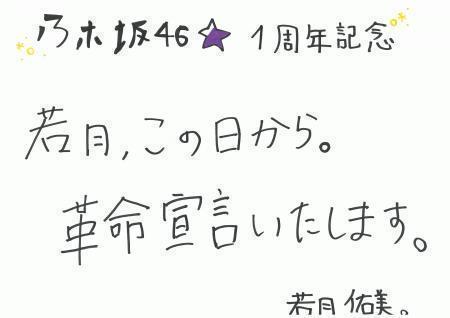 乃木坂46★ 1周年記念
若月,この日から。
革命宣言いたします。
若月佑美。